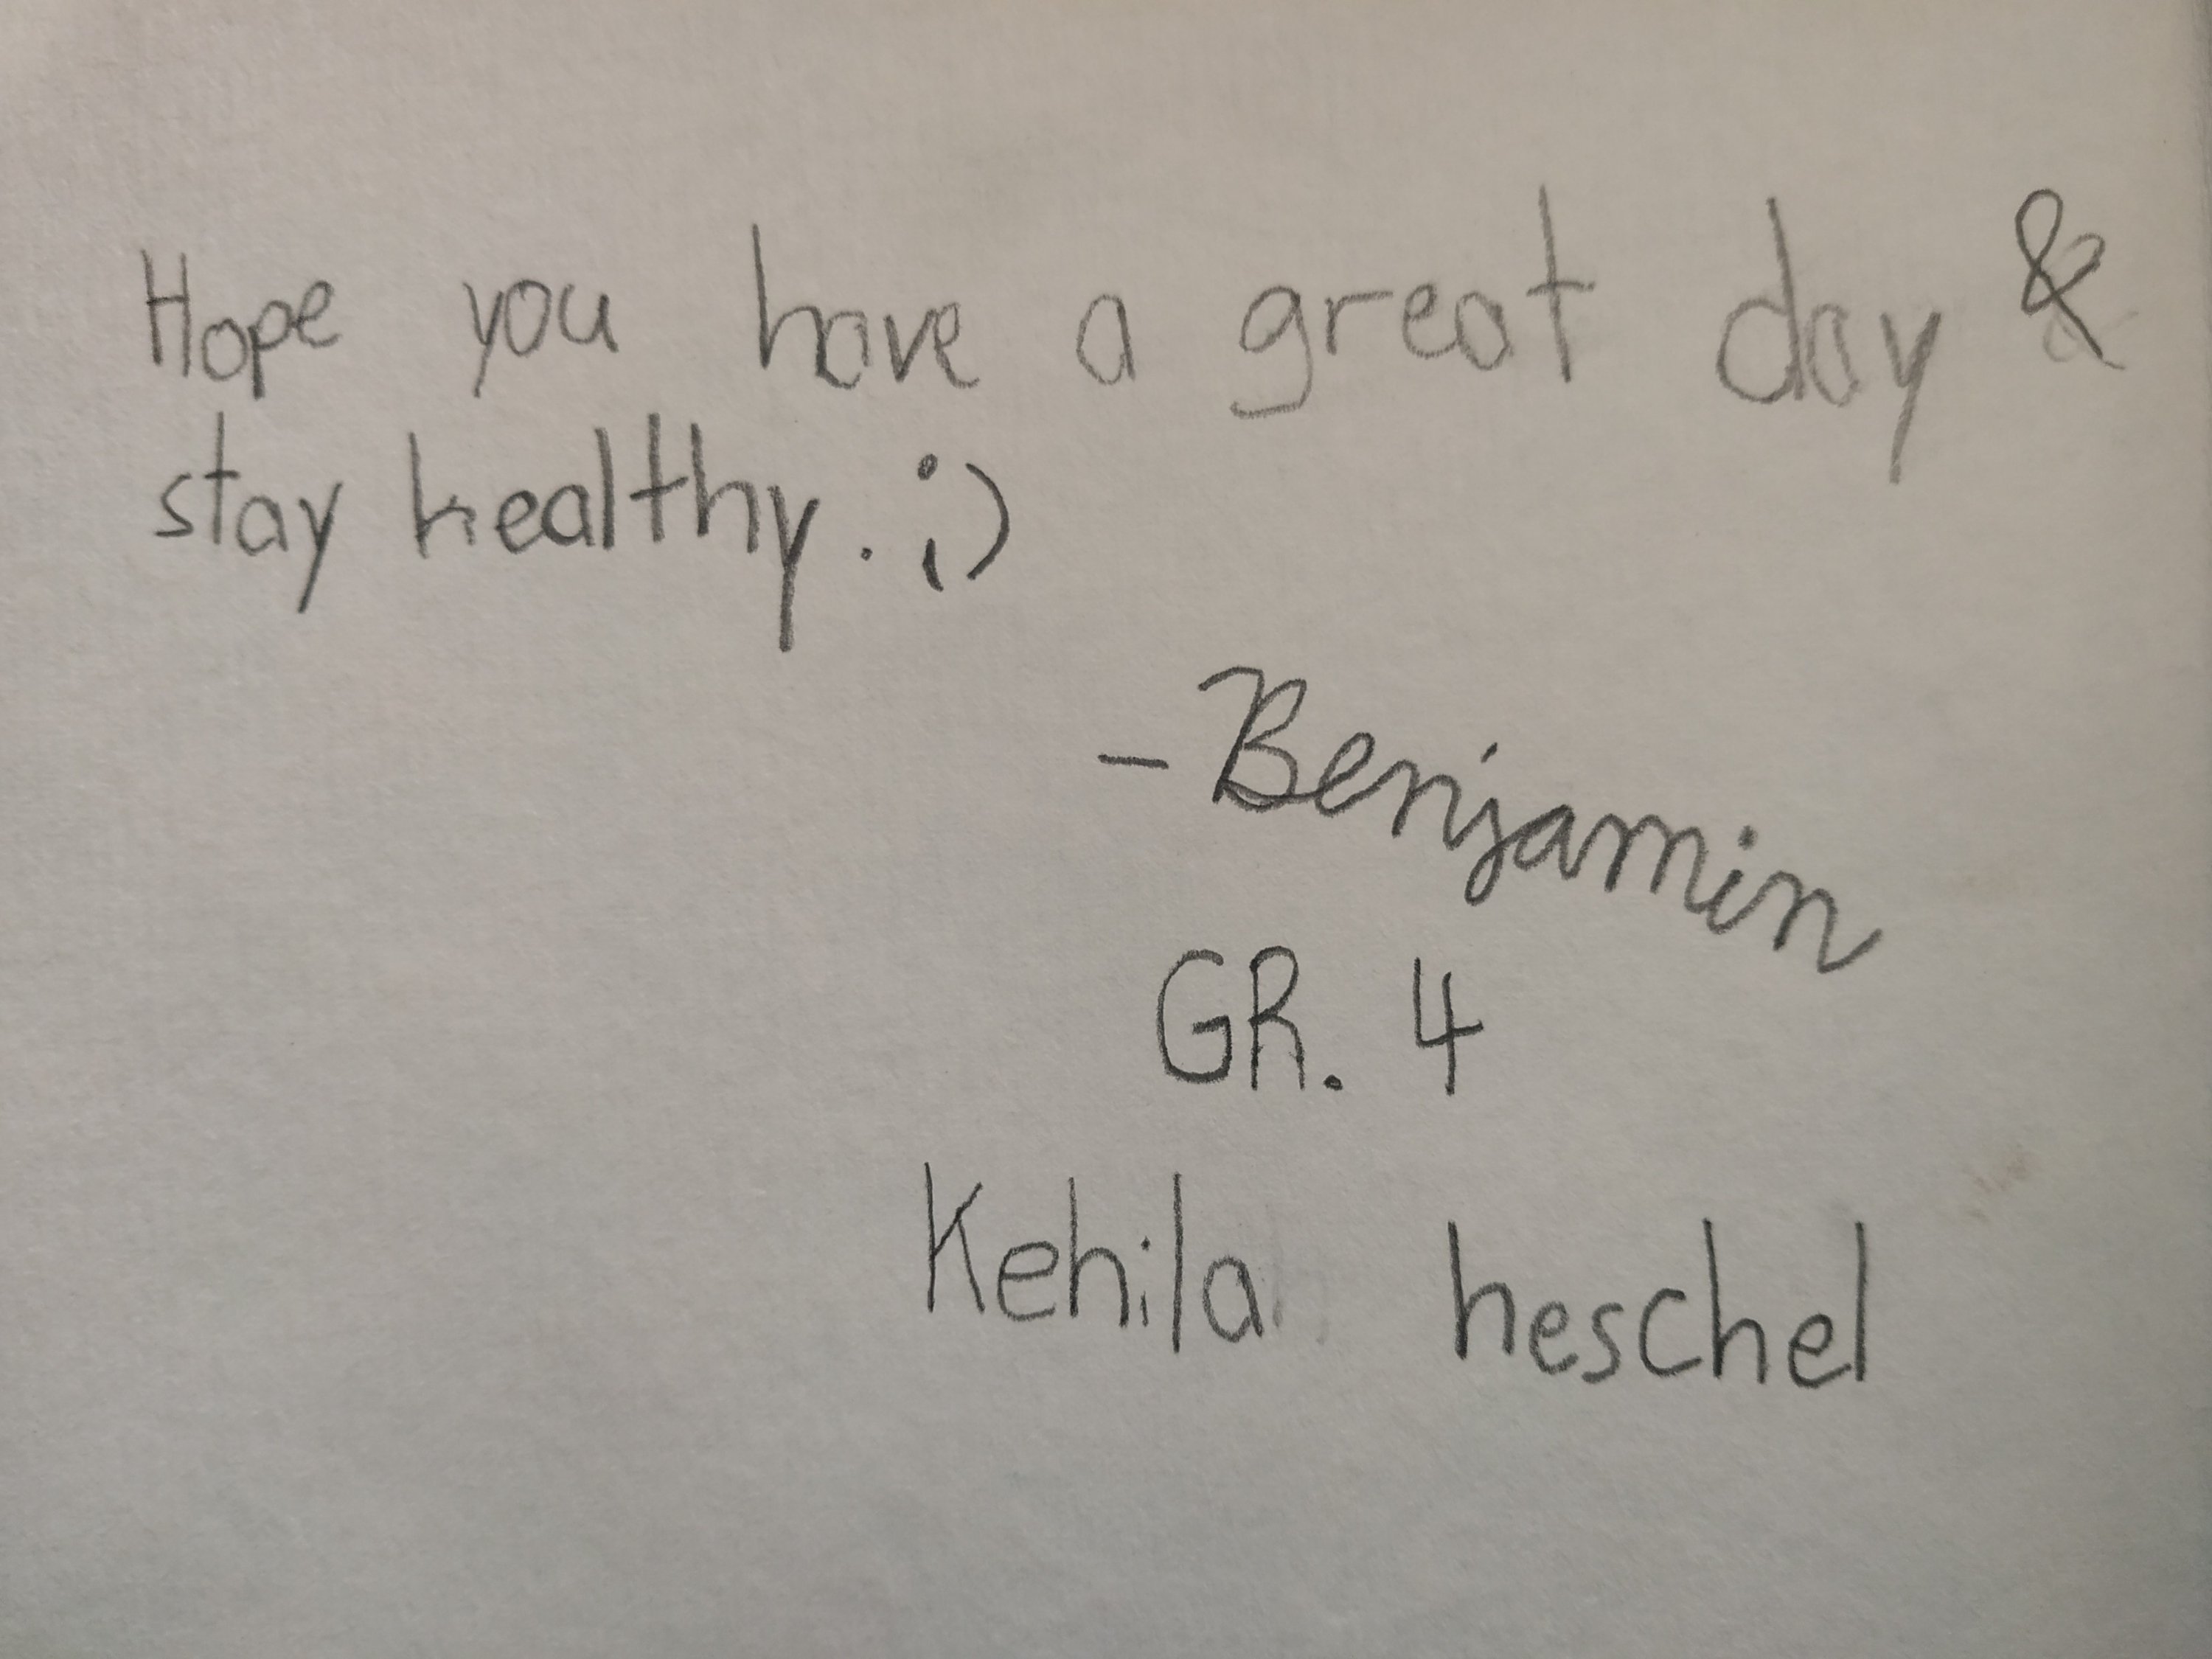 Hope you have a great day &
stay healthy. ;)
- Benjamin
GR. 4
Kehila heschel